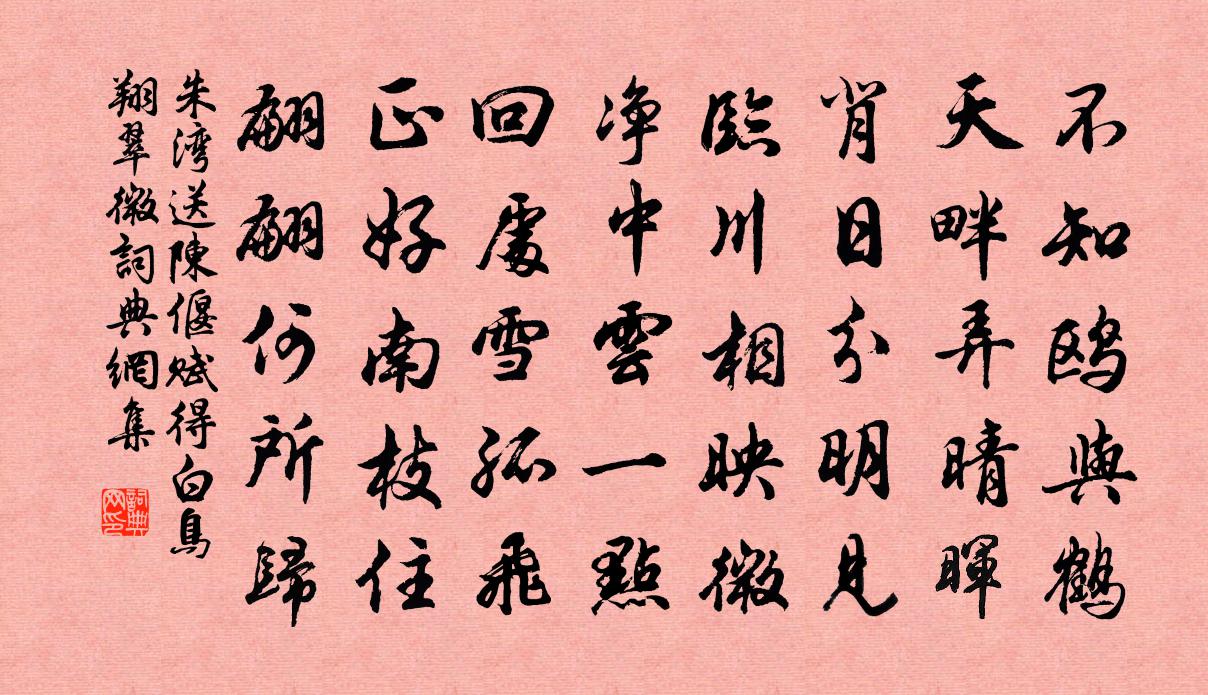 不知鸥與鶴
天畔弄晴暉
背日分明見
臨川相映微
净中雲一點
回處雪孤飛
正好南枝住
翩翩何所歸
朱湾送陳偃赋得白鳥
翔翠微詞典網集
詞典网印